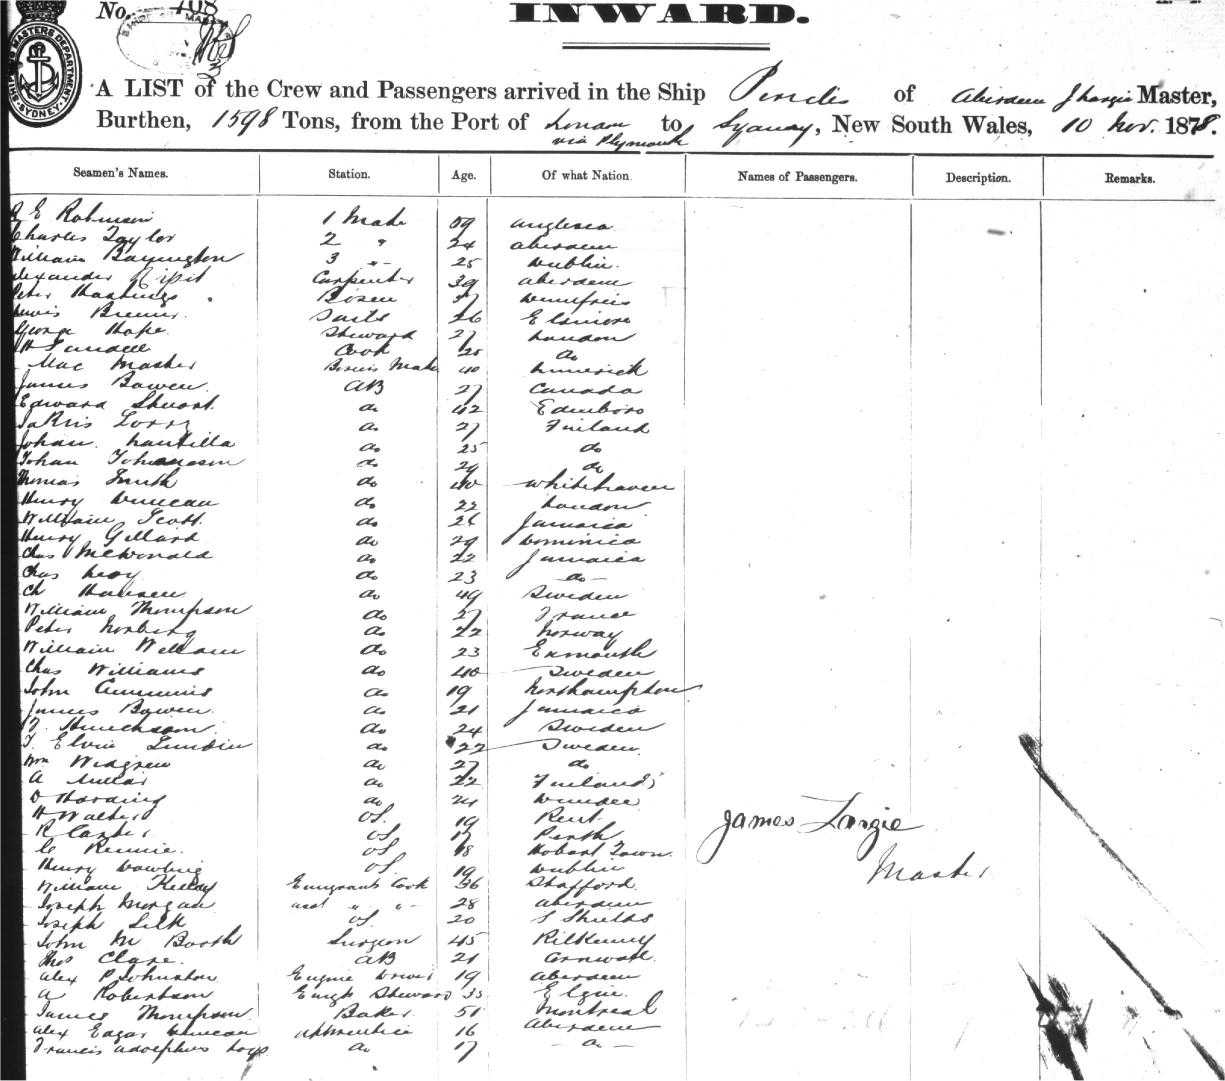 No. 408
INWARD.
SHIPPING MASTERS DEPARTMENT SYDNEY
A LIST of the Crew and Passengers arrived in the Ship Pericles of Aberdeen J Largie Master,
Burthen, 1598 Tons, from the Port of London via Plymouth to Sydney, New South Wales, 10 Nov. 1878.
Seamen's Names. Station. Age. Of what Nation. Names of Passengers. Description. Remarks.
E Robinson 1 Mate Anglesea
Charles Taylor 2 " 24 Aberdeen
William 3 " 25 Dublin.
Alexander Carpenter 39 Aberdeen
Peter Hastings Bosen 37 Dumfries
Bremer Sails 26 Elsinore
George Hope Steward 27 London
Cook do
Mac Master Bosens Mate 40 Limerick
James Bowen AB 27 Canada
Edward Stuart do 42 Edinboro
do 27 Finland
Johan do 25 do
Johan Johansson do 29 do
Thomas Smith do 40 Whitehaven
Henry Duncan do 22 London
William Scott do 26 Jamaica
Henry Gillard do 29 Dominica
Chas McDonald do 22 Jamaica
Chas do 23 do
Ch Hansen do 49 Sweden
William Thompson do 27 France
Peter Norberg do 22 Norway
William Welham do 23 Exmouth
Chas Williams do 40 Sweden
John Cummins do 19 Northampton
James Bowen do 21 Jamaica
do 24 Sweden
do 22 Sweden
Wm Widgren do 27 do
A Millar do 22 Finland
D Harding do 24 Dundee
H Walker OS. 19 Kent
R OS 17 Perth
C Rennie. OS 18 Hobart Town.
Henry Dowling OS 19 Dublin
William Kelly Emigrants Cook 36 Stafford.
Joseph Morgan asst " " 28 Aberdeen
Joseph Silk OS 20 S Shields
John M Booth Surgeon 45 Kilkenny
Thos Clare. AB 21 Cornwall
Alex P Johnston Engine Driver 19 Aberdeen
A Robertson Emigt Steward 35 Elgin.
James Thompson Baker 51 Montreal
Alex Edgar Duncan Apprentice 16 Aberdeen
Francis Adolphus do 17 do
James Largie
Master